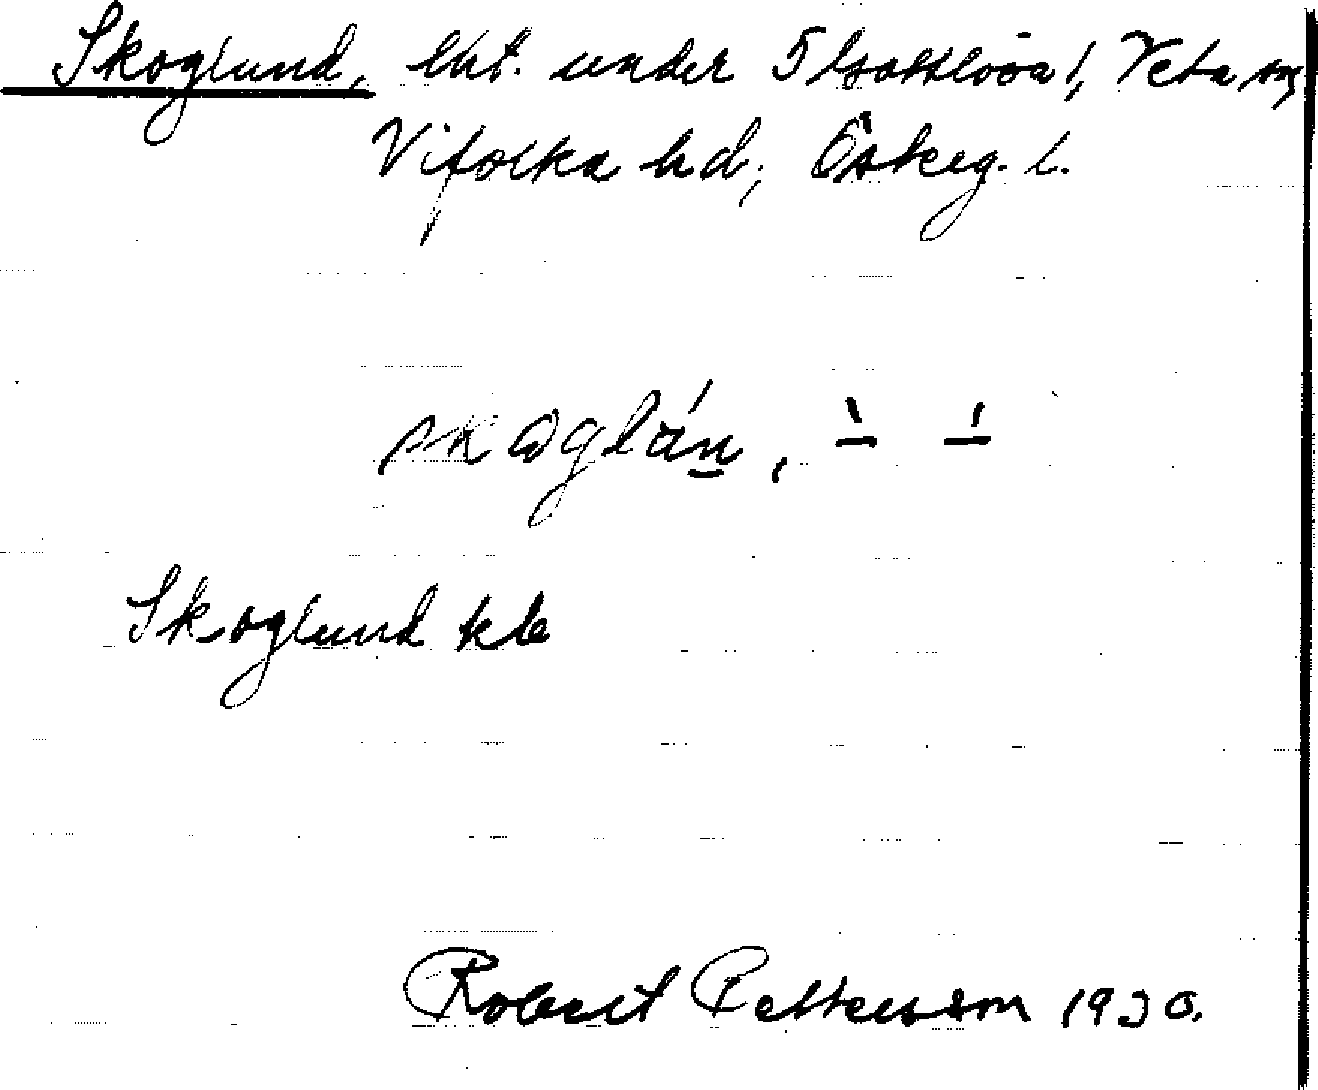 Skoglund, lht. under 5 Isattlösa !, Veta sn,
Vifolka hd, Österg. l.
skoglún, ̀– ́–
Skoglund kb
Robert Pettersson 1930.